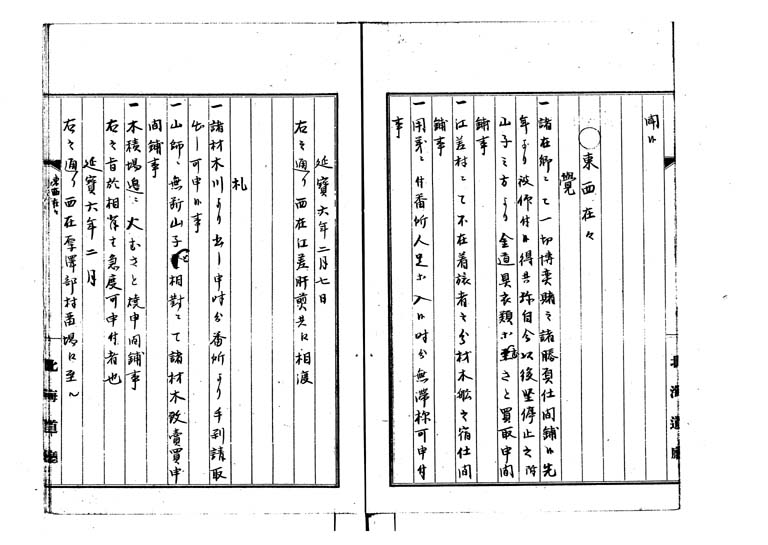 聞候
○東西在々
覚
一諸在郷ニて一切博奕賭之諸勝負仕間鋪候先
年より被仰付候得共弥自今以後堅停止之所
山子之方より金道具衣類
さと買取申間
鋪事
一江差村ニて不在着旅者之分材木船之宿仕間
鋪事
一用第ニ付番所人足等入候時分無滞称可申付
事
延寶六年二月七日
右之通り西在江差肝煎共に相渡
札
一諸材木川より出し申時分番所より手判請取
出し可申候事
一山師ニ無断山子相対ニて諸材木致賣買申
間鋪事
一木積場邊ニ火むさと焼申間鋪事
右之旨於相背ハ急度可申付者也
延寶六年二月
右之通り西在厚澤部村番場に至
北海道廳
北海道廳